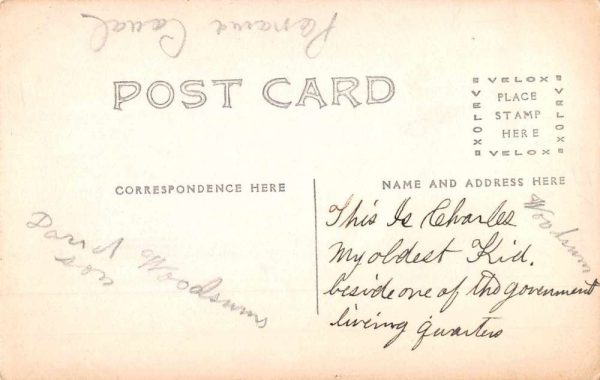 Panama Canal
POST CARD
VELOX
VELOX
PLACE
STAMP
HERE
VELOX
VELOX
CORRESPONDENCE HERE
NAME AND ADDRESS HERE
This Is Charles
My oldest Kid.
beside one of The goverment
liveing quarters